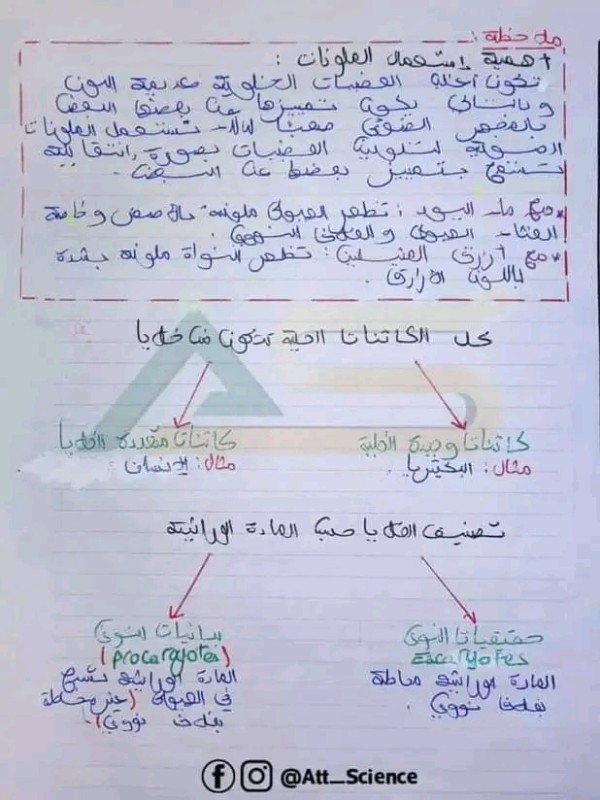 ملاحظة :
أهمية إستعمال الملونات :
تكون أغلبية العضيات الخلوية عديمة اللون
وبالتالي يكون تمييزها عن بعضها البعض
بالمجهر الضوئي صعبا لذلك تستعمل الملونات
الضوئية لتلوين العضيات بصورة انتقائية
تسمح بتمييز بعضها عن البعض .
* مع ماء اليود : تظهر الهيولى ملونة بالأصفر وخاصة
الغشاء الهيولي و الغشاء النووي .
* مع أزرق الميثيلين : تظهر النواة ملونة بشدة
باللون الأزرق .
كل الكائنات الحية تتكون من خلايا
كائنات وحيدة الخلية
مثال : البكتيريا .
كائنات متعددة الخلايا
مثال : الإنسان .
تصنيف الخلايا حسب المادة الوراثية
حقيقيات النوى
Eucaryotes
المادة الوراثية محاطة
بغلاف نووي .
بدائيات النوى
(procaryotes)
المادة الوراثية تسبح
في الهيولى (غير محاطة
بغلاف نووي) .
@Att_Science